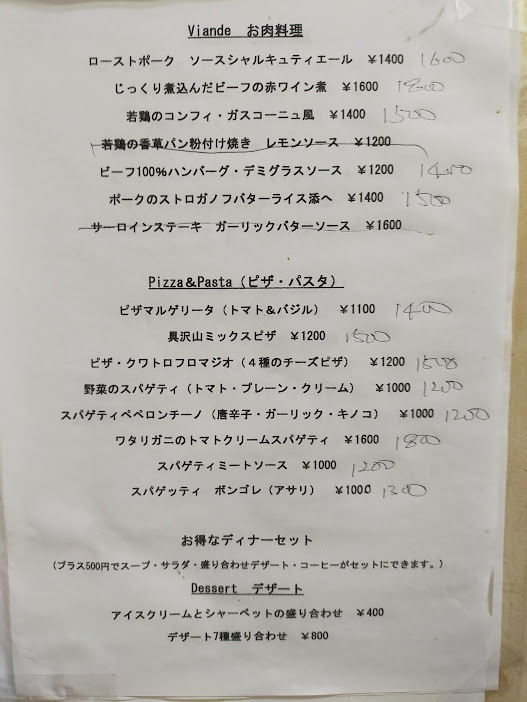 Viande お肉料理
ローストポーク ソースシャルキュティエール ¥1400 1600
じっくり煮込んだビーフの赤ワイン煮 ¥1600 1800
若鶏のコンフィ・ガスコーニュ風 ¥1400 1500
若鶏の香草パン粉付け焼き レモンソース ¥1200
ビーフ100%ハンバーグ・デミグラスソース ¥1200 1400
ポークのストロガノフバターライス添へ ¥1400 1500
サーロインステーキ ガーリックバターソース ¥1600
Pizza&Pasta(ピザ・パスタ)
ピザマルゲリータ(トマト&バジル) ¥1100 1400
具沢山ミックスピザ ¥1200 1500
ピザ・クワトロフロマジオ(4種のチーズピザ) ¥1200 1500
野菜のスパゲティ(トマト・プレーン・クリーム) ¥1000 1200
スパゲティペペロンチーノ(唐辛子・ガーリック・キノコ) ¥1000 1200
ワタリガニのトマトクリームスパゲティ ¥1600 1800
スパゲティミートソース ¥1000 1200
スパゲッティ ボンゴレ(アサリ) ¥1000 1300
お得なディナーセット
(プラス500円でスープ・サラダ・盛り合わせデザート・コーヒーがセットにできます。)
Dessert デザート
アイスクリームとシャーベットの盛り合わせ ¥400
デザート7種盛り合わせ ¥800